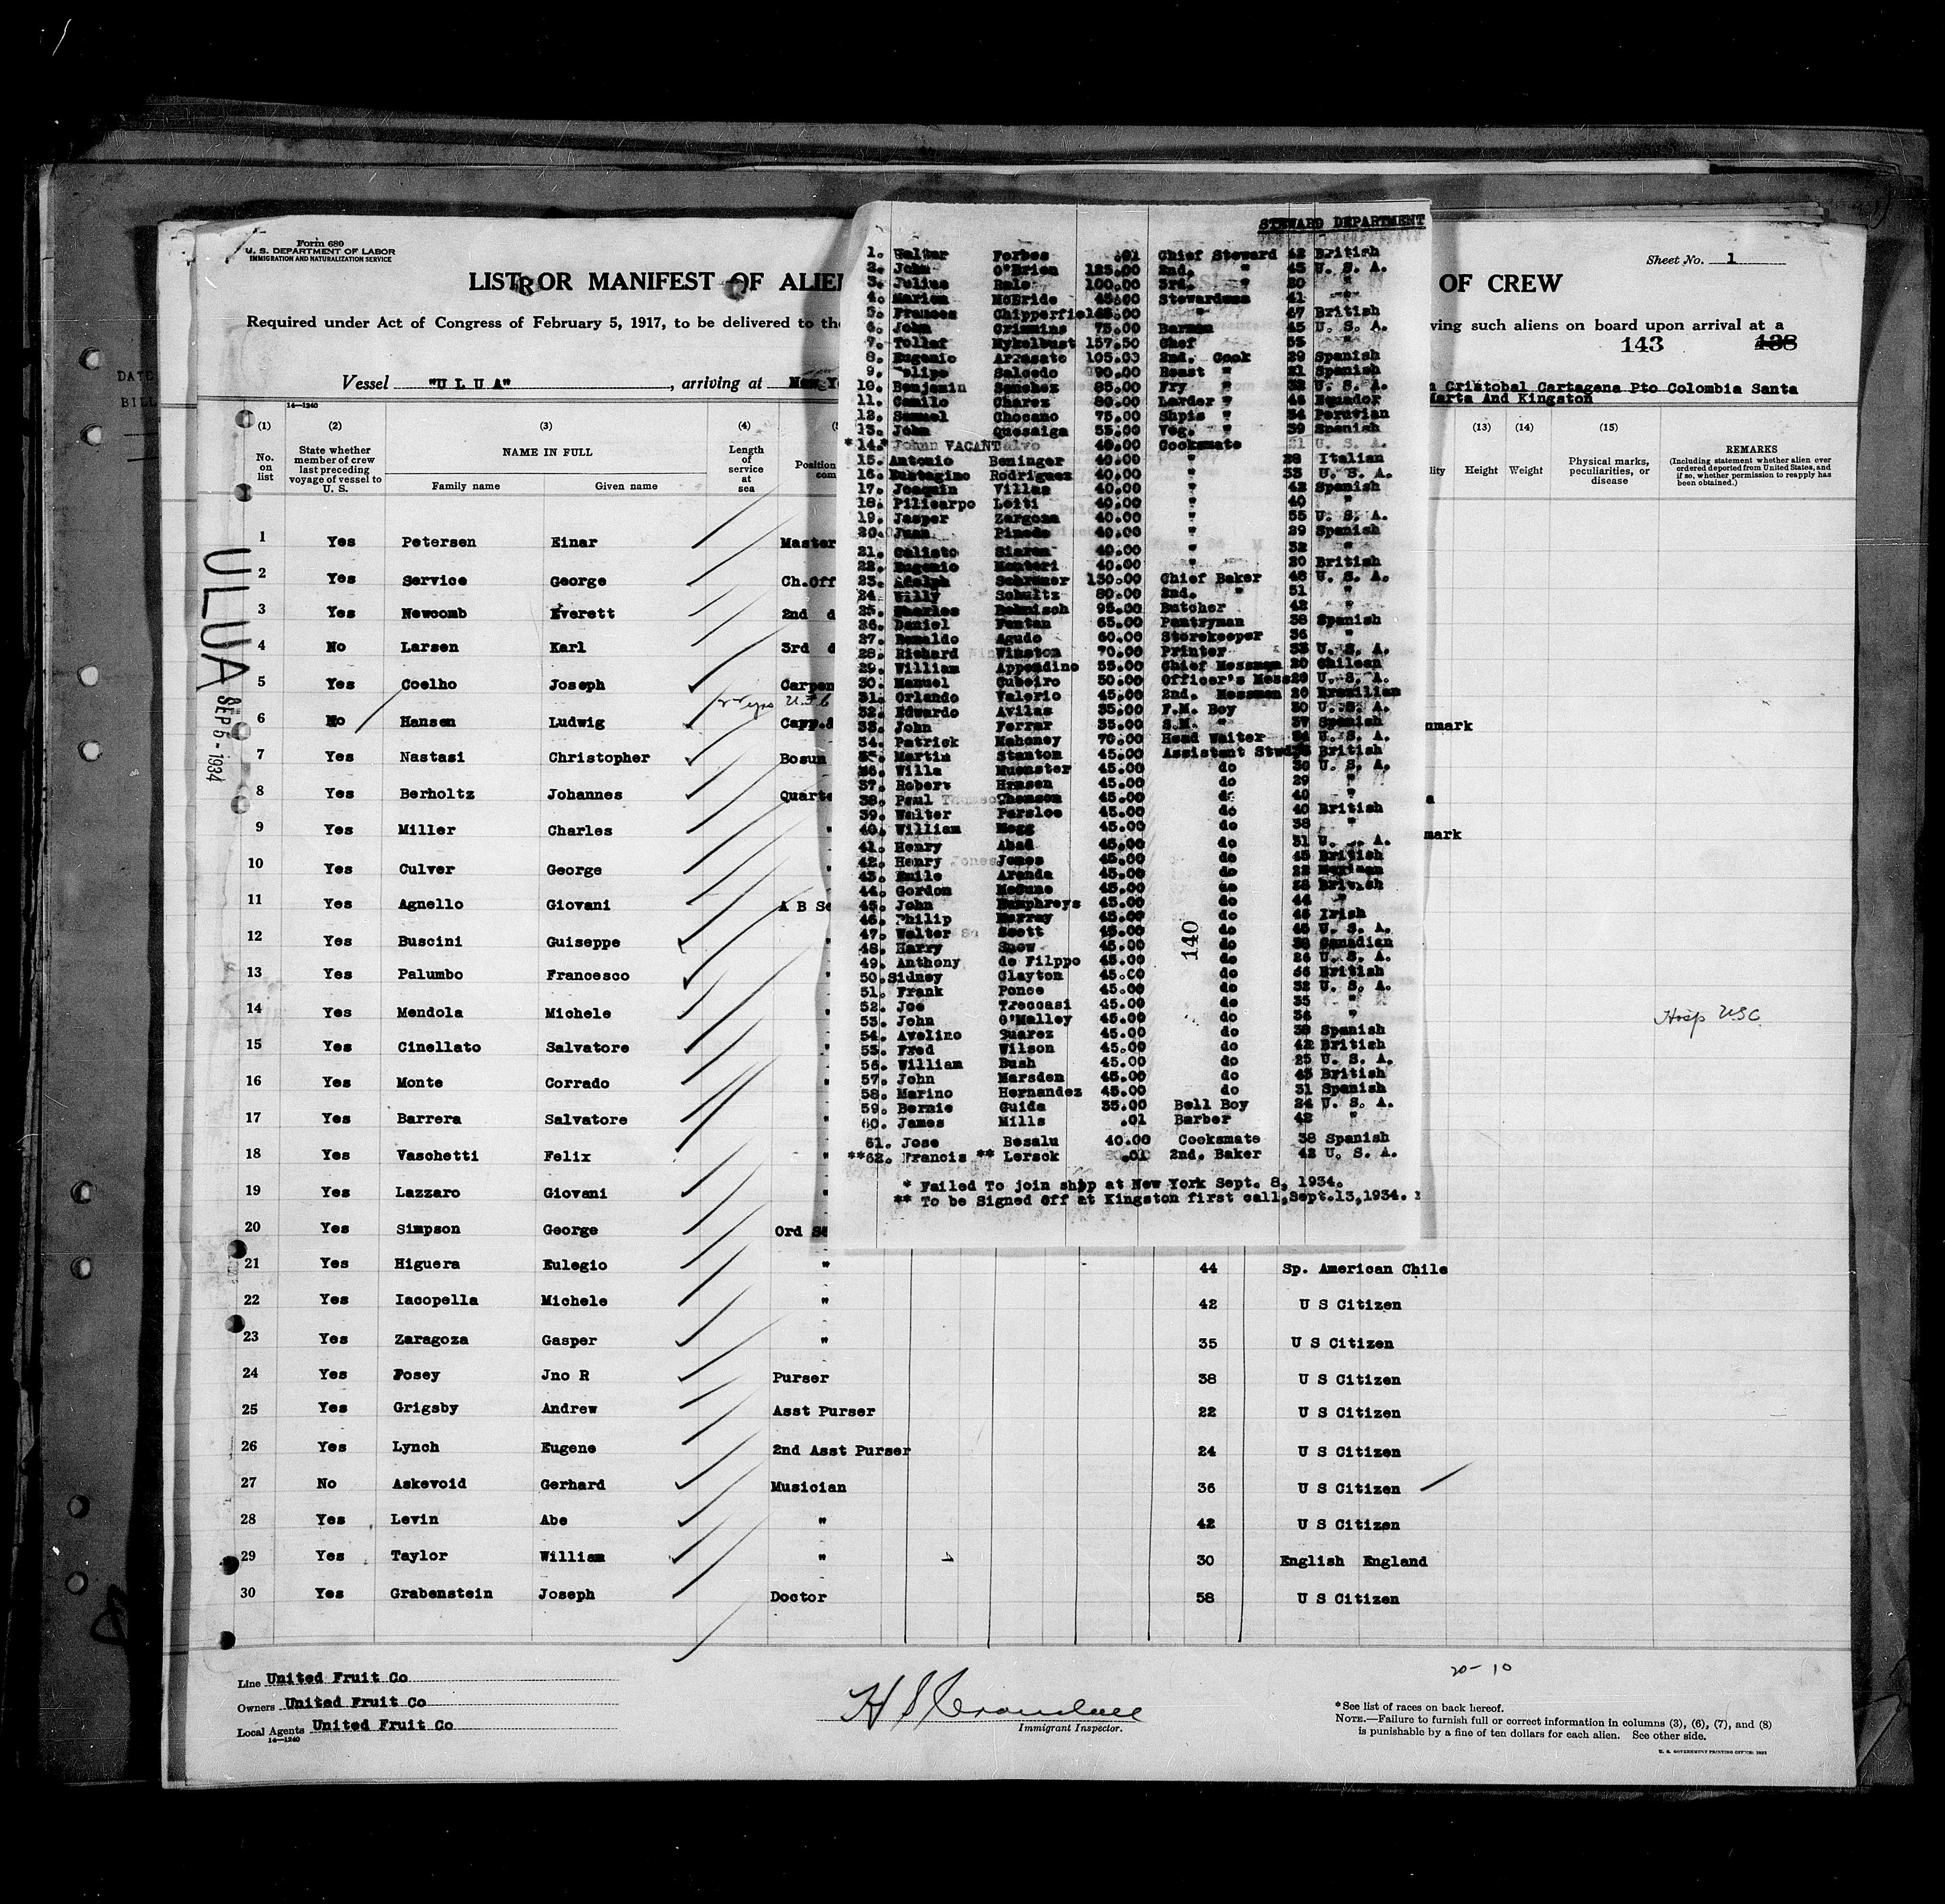 Form 680
U. S. DEPARTMENT OF LABOR
IMMIGRATION AND NATURALIZATION SERVICE
LIST OR MANIFEST OF ALIE
OF CREW
Sheet No. 1
Required under Act of Congress of February 5, 1917, to be delivered to the
ving such aliens on board upon arrival at a
143 138
Vessel "U L U A", arriving at New Y
Cristobal Cartagena Pto Colombia Santa
Marta And Kingston
14—1240
(1) (2) (3) (4) (13) (14) (15)
No. on list
State whether member of crew last preceding voyage of vessel to U. S.
NAME IN FULL
Family name Given name
Length of service at sea
Position
com
lity Height Weight
Physical marks, peculiarities, or disease
REMARKS
(Including statement whether alien ever ordered deported from United States, and if so, whether permission to reapply has been obtained.)
ULUA
SEP 5 - 1934
1 Yes Petersen Einar Master
2 Yes Service George Ch.Off
3 Yes Newcomb Everett 2nd d
4 No Larsen Karl 3rd d
5 Yes Coelho Joseph Carpen
6 No Hansen Ludwig Carp.S nmark
7 Yes Nastasi Christopher Bosun
8 Yes Berholtz Johannes Quarte a
9 Yes Miller Charles " mark
10 Yes Culver George "
11 Yes Agnello Giovani A B Se
12 Yes Buscini Guiseppe "
13 Yes Palumbo Francesco "
14 Yes Mendola Michele " Hosp USC
15 Yes Cinellato Salvatore "
16 Yes Monte Corrado "
17 Yes Barrera Salvatore "
18 Yes Vaschetti Felix "
19 Yes Lazzaro Giovani "
20 Yes Simpson George Ord Se
21 Yes Higuera Eulegio " 44 Sp. American Chile
22 Yes Iacopella Michele " 42 U S Citizen
23 Yes Zaragoza Gasper " 35 U S Citizen
24 Yes Posey Jno R Purser 38 U S Citizen
25 Yes Grigsby Andrew Asst Purser 22 U S Citizen
26 Yes Lynch Eugene 2nd Asst Purser 24 U S Citizen
27 No Askevoid Gerhard Musician 36 U S Citizen
28 Yes Levin Abe " 42 U S Citizen
29 Yes Taylor William " 30 English England
30 Yes Grabenstein Joseph Doctor 58 U S Citizen
STEWARD DEPARTMENT
1. Walter Forbes .01 Chief Steward 42 British
2. John O'Brien 125.00 2nd. " 45 U. S. A.
3. Julius 100.00 3rd. " 30 "
4. Marion McBride 45.00 Stewardess 41 "
5. Frances Chipperfield " 47 British
6. John Crimmins 75.00 Barman 45 U. S. A.
7. Tollef Mykelbust 157.50 Chef 55 "
8. Eugenio 105.03 2nd. Cook 29 Spanish
9. Salcedo 90.00 Roast " 21 Spanish
10. Benjamin Sanchez 85.00 Fry " 32 U. S. A.
11. Camilo Charez 80.00 Larder " 43 Equador
12. Samuel Chocano 75.00 Shpis " 34 Peruvian
13. John Quesaiga 55.00 Veg. " 39 Spanish
*14.* VACANT 40.00 Cooksmate 21 U. S. A.
15. Antonio Beninger 40.00 " 38 Italian
16. Rodriguez 40.00 " 33 U. S. A.
17. Joaquin Villaa 40.00 " 42 Spanish
18. Pilicarpo Loiti 40.00 " 40 "
19. Jasper Zargoza 40.00 " 55 U. S. A.
20. Juan Pinedo 40.00 " 29 Spanish
21. Calisto 40.00 " 32 "
22. Eugenio Monteri 40.00 " 20 British
23. Adolph Schramer 130.00 Chief Baker 48 U. S. A.
24. Willy Schultz 80.00 2nd. " 51 "
25. Charles 95.00 Butcher 42 "
26. Daniel Fontan 65.00 Pantryman 38 Spanish
27. Romaldo Agudo 60.00 Storekeeper 36 "
28. Richard Winston 70.00 Printer 33 U. S. A.
29. William Appendino 55.00 Chief Messman 20 Chilean
30. Manuel Cubeiro 50.00 Officer's Mess 29 U. S. A.
31. Orlando Valerio 45.00 2nd. Messman 20 Brazilian
32. Edwardo Avilas 35.00 P.M. Boy 30 U. S. A.
33. John Ferrar 35.00 S.M. " 37 Spanish
34. Patrick Mahoney 70.00 Head Waiter U. S. A.
35. Martin Stanton 45.00 Assistant Stwd British
36. Willa Muenster 45.00 do 30 U. S. A.
37. Robert Hansen 45.00 do 29 "
38. Paul Thomson 45.00 do 40 "
39. Walter Parsloe 45.00 do 40 British
40. William Mogg 45.00 do 38 "
41. Henry Abad 45.00 do 31 U. S. A.
42. Henry Jones 45.00 do 45 British
43. Emile Aranda 45.00 do 22 Mexican
44. Gordon McCune 45.00 do 28 British
45. John Humphreys 45.00 do 44 "
46. Philip Murray 45.00 do 45 Irish
47. Walter Scott 45.00 do 45 U. S. A.
48. Harry Snow 45.00 do 38 Canadian
49. Anthony de Filppo 45.00 do 26 U. S. A.
50. Sidney Clayton 45.00 do British
51. Frank Ponce 45.00 do 32 U. S. A.
52. Joe Treccasi 45.00 do 35 "
53. John O'Malley 45.00 do 36 "
54. Avelino Suarez 45.00 do 38 Spanish
55. Fred Wilson 45.00 do 42 British
56. William Bush 45.00 do 25 U. S. A.
57. John Marsden 45.00 do 43 British
58. Marino Hernandez 45.00 do 31 Spanish
59. Bernie Guida 35.00 Bell Boy 24 U. S. A.
60. James Mills .01 Barber 42 "
61. Jose Besalu 40.00 Cooksmate 38 Spanish
**62. Francis ** Lersck .01 2nd. Baker 42 U. S. A.
* Failed To join ship at New York Sept. 8, 1934.
** To be Signed Off at Kingston first call, Sept.13,1934.
140
Line United Fruit Co
Owners United Fruit Co
Local Agents United Fruit Co
14—1240
Immigrant Inspector.
20-10
*See list of races on back hereof.
NOTE.—Failure to furnish full or correct information in columns (3), (6), (7), and (8)
is punishable by a fine of ten dollars for each alien. See other side.
DATE
BILL